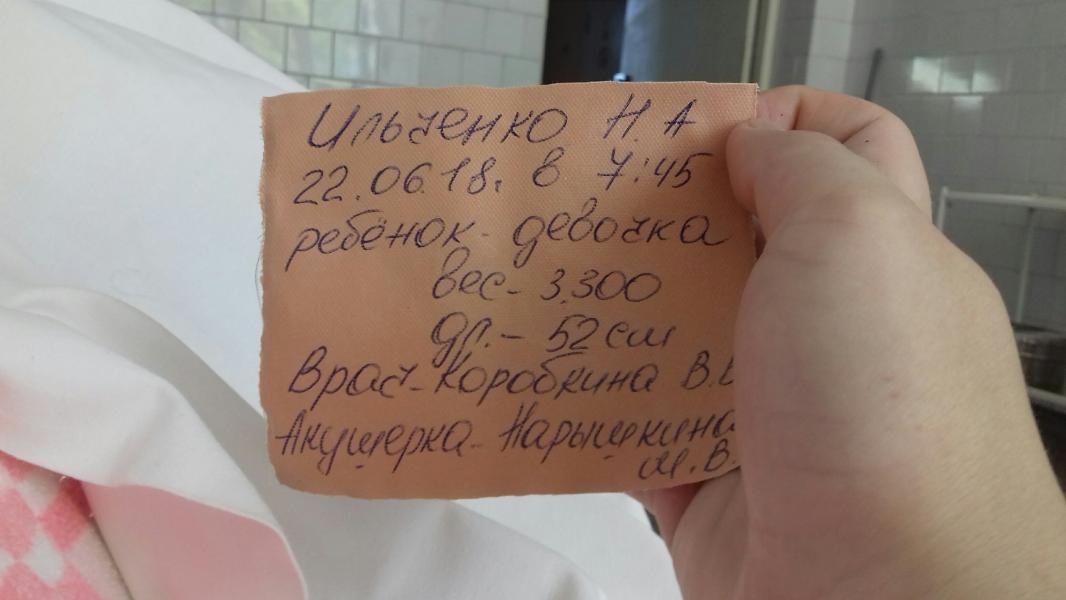 Ильченко Н.А
22.06.18г. в 7:45
ребёнок- девочка
вес- 3.300
дл.- 52 см
Врач- Коробкина В.
Акушерка- Нарышкина
М.В.